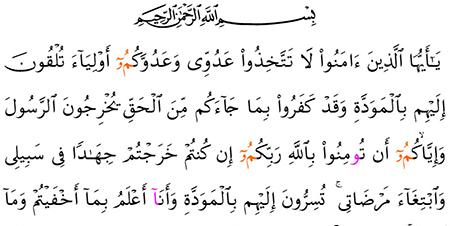 بِسْمِ اللَّهِ الرَّحْمَٰنِ الرَّحِيمِ
يَـٰٓأَيُّهَا ٱلَّذِينَ ءَامَنُوا۟ لَا تَتَّخِذُوا۟ عَدُوِّى وَعَدُوَّكُمُۥٓ أَوْلِيَآءَ تُلْقُونَ
إِلَيْهِم بِٱلْمَوَدَّةِ وَقَدْ كَفَرُوا۟ بِمَا جَآءَكُم مِّنَ ٱلْحَقِّ يُخْرِجُونَ ٱلرَّسُولَ
وَإِيَّاكُمُۥٓ أَن تُومِنُوا۟ بِٱللَّهِ رَبِّكُمُۥٓ إِن كُنتُمْ خَرَجْتُمْ جِهَـٰدًا فِى سَبِيلِى
وَٱبْتِغَآءَ مَرْضَاتِى ۚ تُسِرُّونَ إِلَيْهِم بِٱلْمَوَدَّةِ وَأَنَآ أَعْلَمُ بِمَآ أَخْفَيْتُمْ وَمَآ